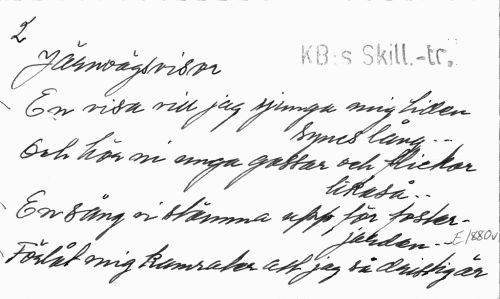 2
Järnvägsvisor
KB:s Skill.-tr.
En visa vill jag sjunga mig tiden
synes lång..
Och hör ni unga gossar och flickor
likaså..
En sång vi stämma upp för foster-
jorden..
E 1880v
Förlåt mig kamrater att jag så dristig är